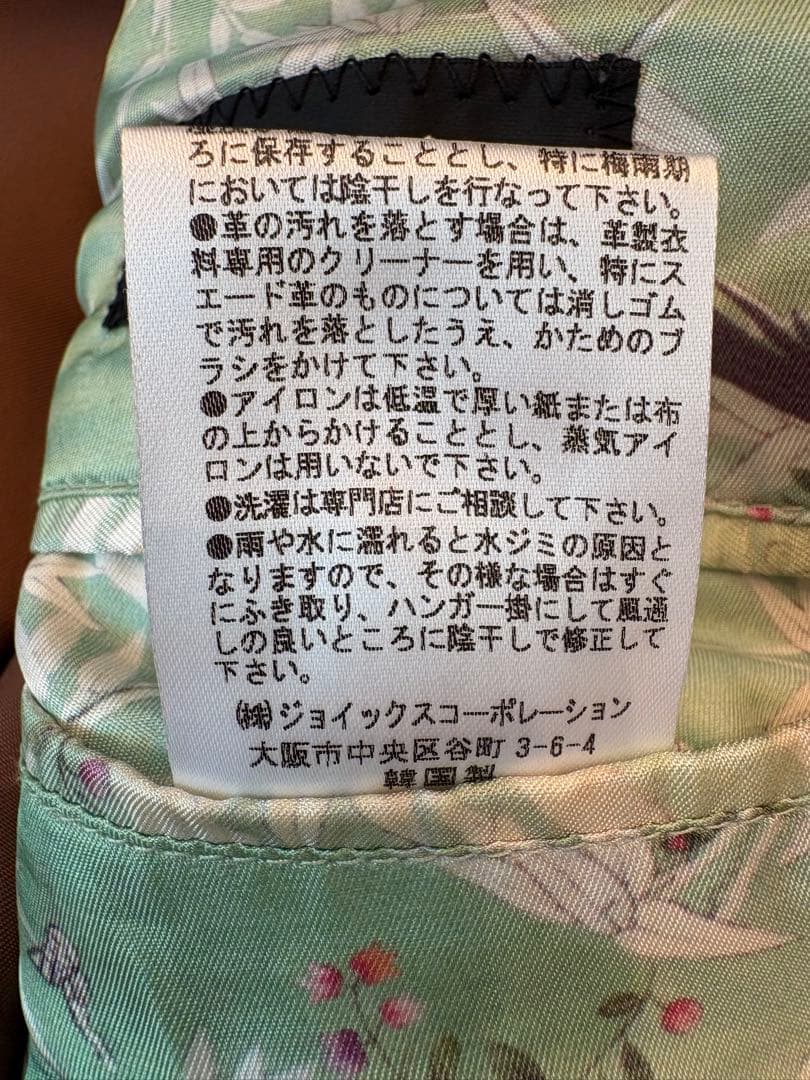 ろに保存することとし、特に梅雨期
においては陰干しを行なって下さい。
●革の汚れを落とす場合は、革製衣
料専用のクリーナーを用い、特にス
エード革のものについては消しゴム
で汚れを落としたうえ、かためのブ
ラシをかけて下さい。
●アイロンは低温で厚い紙または布
の上からかけることとし、蒸気アイ
ロンは用いないで下さい。
●洗濯は専門店にご相談して下さい。
●雨や水に濡れると水ジミの原因と
なりますので、その様な場合はすぐ
にふき取り、ハンガー掛にして風通
しの良いところに陰干しで修正して
下さい。
㈱ジョイックスコーポレーション
大阪市中央区谷町 3-6-4
韓国製